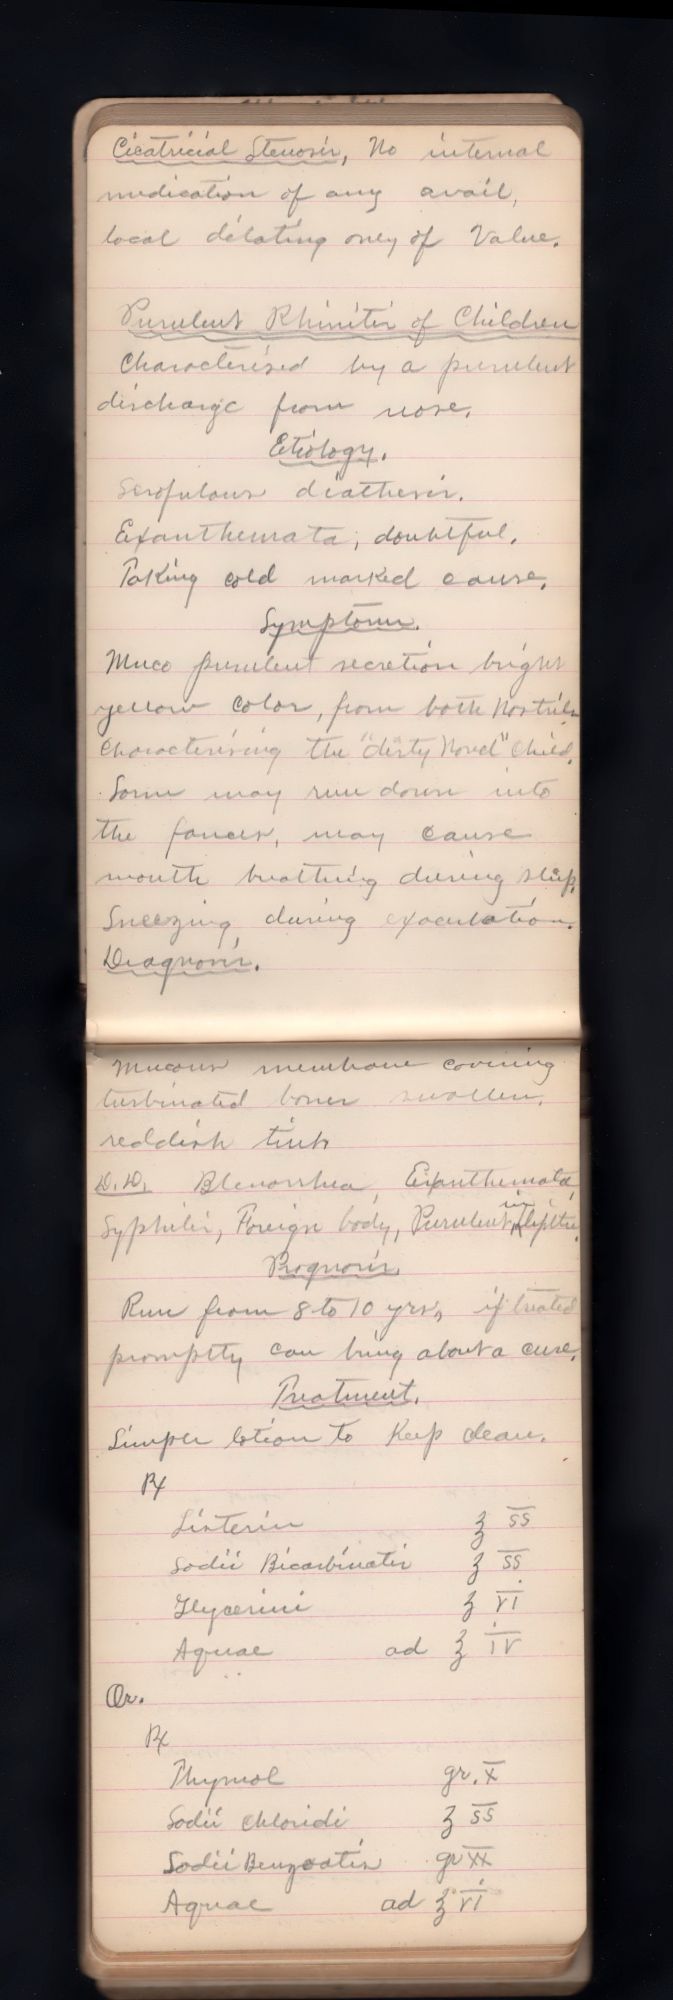 Cicatricial Stenosis, No internal
medication of any avail,
local dilating only of Value.
Purulent Rhinitis of Children
Characterised by a purulent
discharge from nose.
Etiology.
Scrofulous diathesis.
Exanthemata, doubtful.
Taking cold marked cause.
Symptoms.
Muco purulent secretion bright
yellow color, from both Nostrils
characterising the "dirty Nosed" Child.
Some may run down into
the fauces, may cause
mouth breathing during sleep.
Sneezing during
Diagnosis.
Mucous membrane covering
turbinated bones swollen,
reddish tint
D.D. Blenorrhea, Exanthemata,
Syphilis, Foreign body, Purulent in
Prognosis.
Run from 8 to 10 yrs, if treated
promptly can bring about a cure.
Treatment.
Simple lotion to Keep clean.
℞
Listerin ℥ ss
Sodii Bicarbinatis ʒ ss
Glycerini ʒ vi
Aquae ad ℥ iv
Or.
℞
Thymol gr. x
Sodii Chloridi ʒ ss
Sodii Benzoatis gr xx
Aquae ad ℥ vi